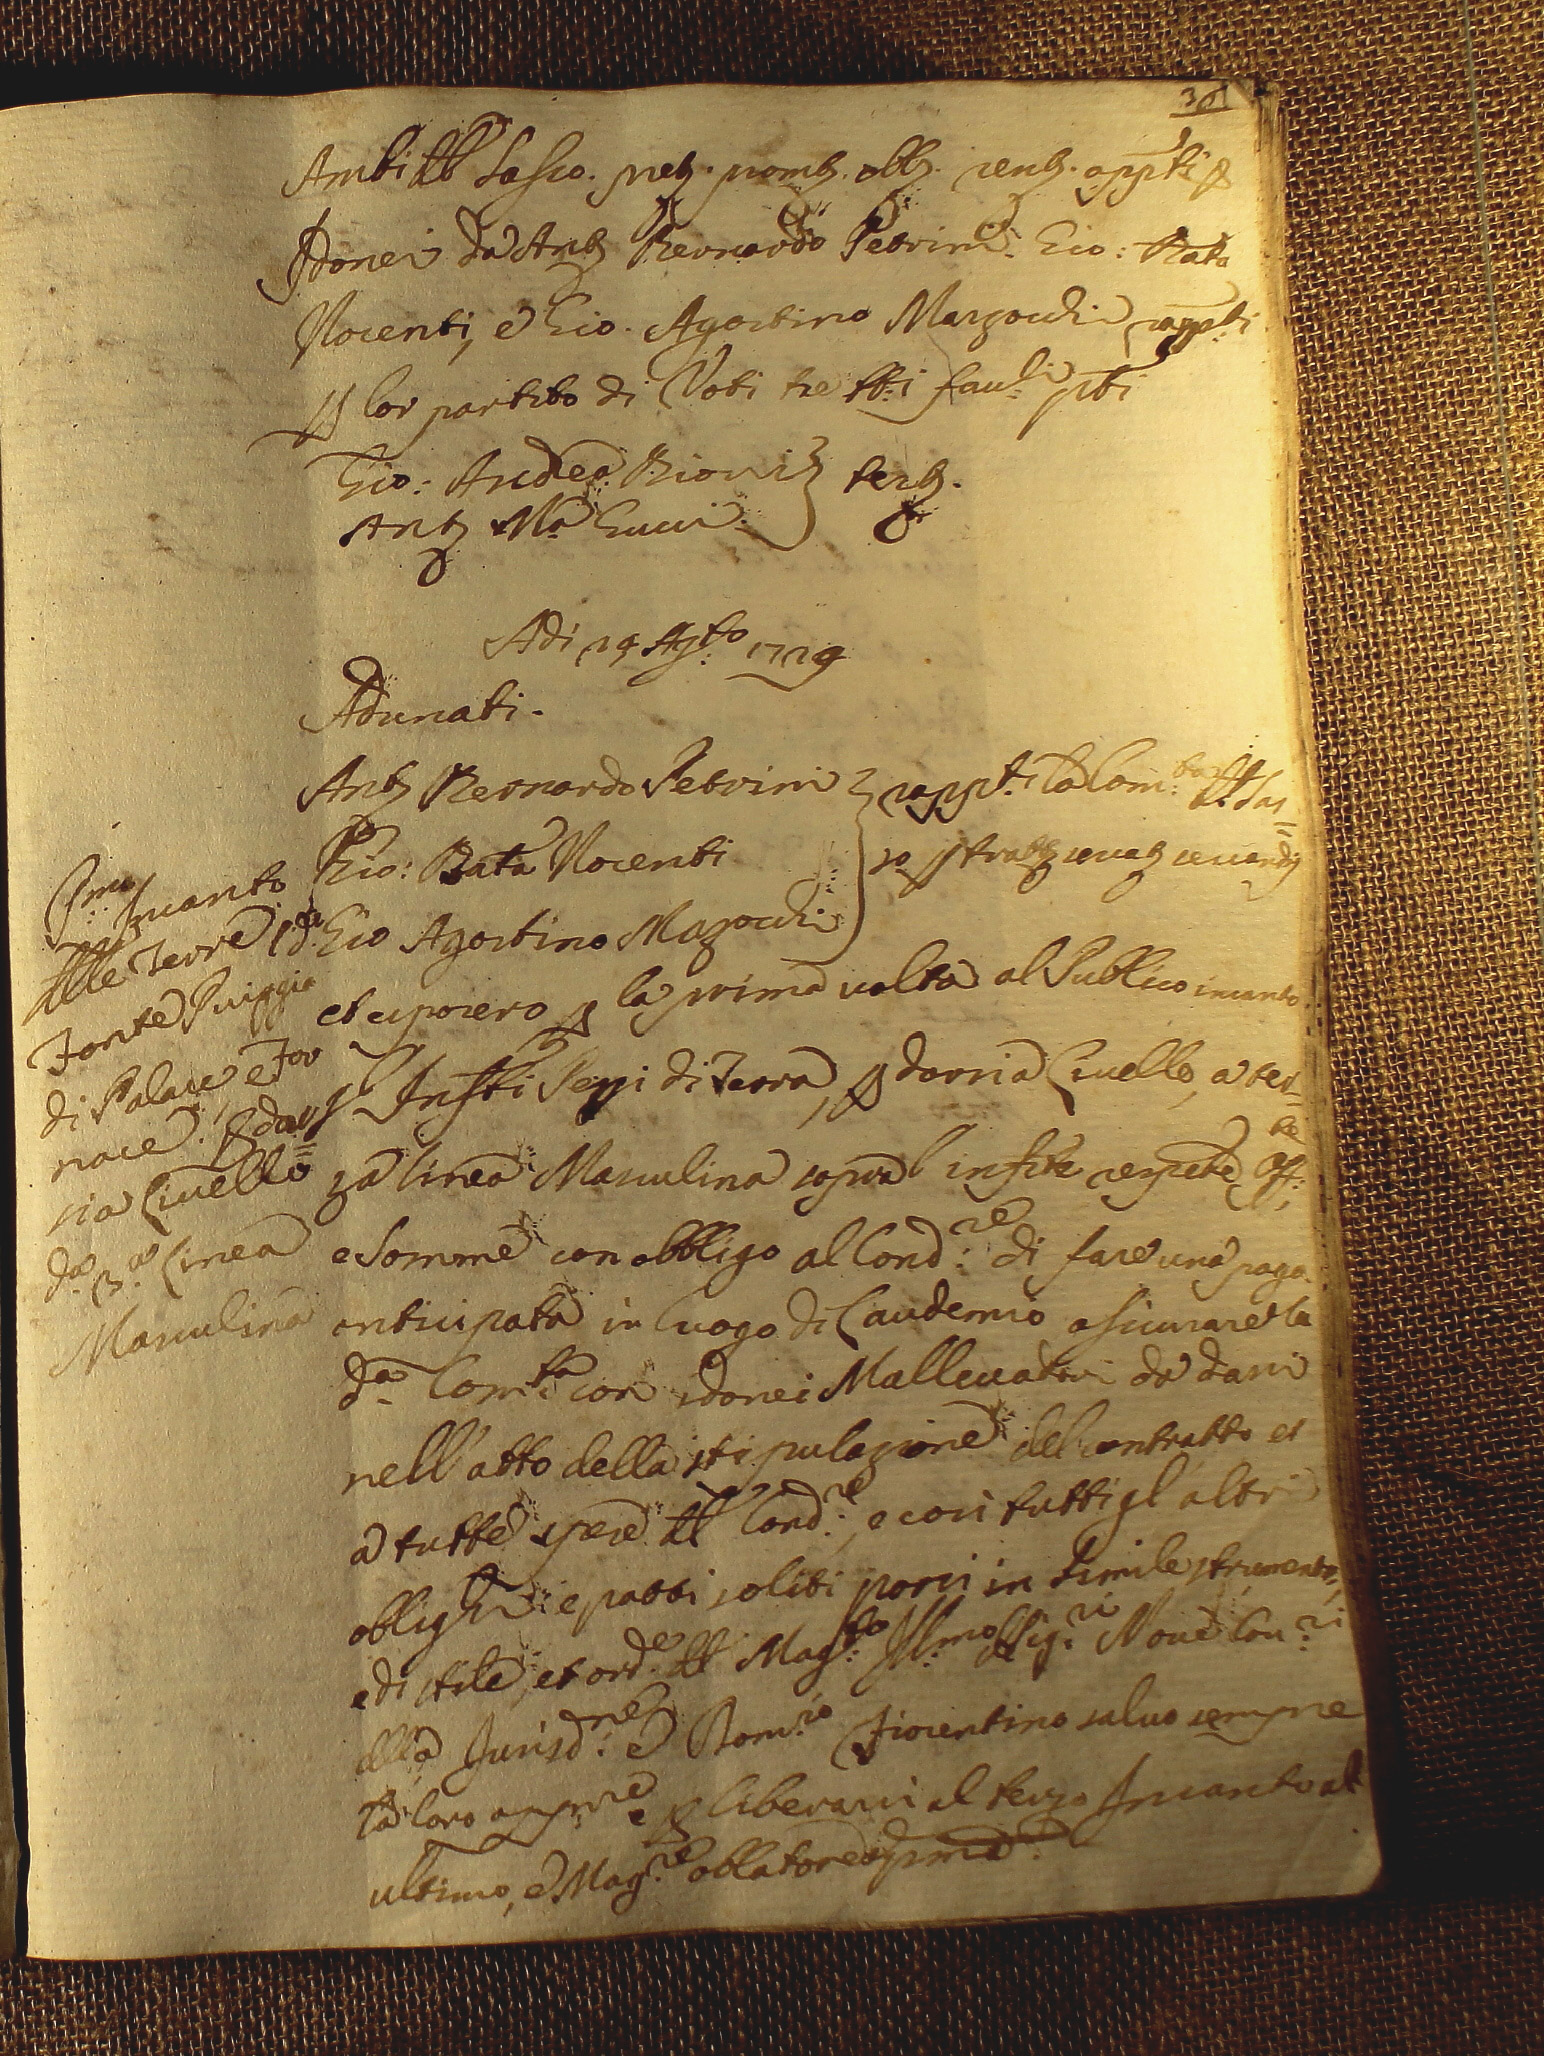 Ambi d.l Sasso.
Idonei da Ant.o Bernardo Petrini. Gio: Bata
Nocenti, e Gio. Agostino Marzocchi
lor partito di Voti tre
Gio: Andrea Bioni
Ant.o M.a Gucci.
Adi 29 Ag.to 1729
Adunati.
Ant.o Bernardo Petrini rapp.ti la Com.tà
Gio: Bata Nocenti
Gio Agostino Mazocchi
P.mo Incanto
delle Terre d.
Fonte Puiggia
di Palaie, e For
nace. p dar
sia Livello
d.a 3.a linea
Masculina
et esposero p la prima volta al Publico incanto
gl' Inf.tti Pezzi di Terra, p darsi a Livello, a ter-
za linea Masculina sopra l'inf.te respe.te off.te
e Somme con obbligo al Cond.re di fare una paga
anticipata in luogo di Laudemio assicurare la
d.a Com.ta con idonei Mallevadori da darsi
nell'atto della stipulazione del contratto et
a tutte spese d.l Cond.re, e con tutti gl'altri
oblighi e patti soliti porsi in simile strumento,
e di stile, et ord.e d.l Mag.to Ill.mo de Sig.ri Nove Con.ri
della Jurisd.ne e Dom.io Fiorentino salvo sempre
la loro appro.ne e p liberarsi al terzo Incanto all
ultimo, e Mag.re oblatore